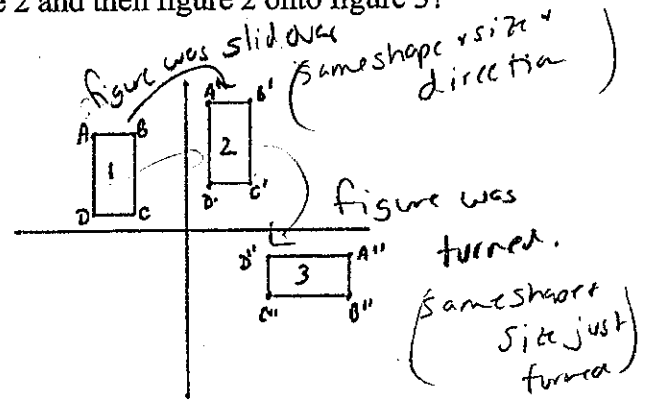 e 2 and then figure 2 onto figure 3?
figure was slid over
(same shape + size +
direction)
A B
1
D C
A' B'
2
D' C'
figure was
turned.
D" A"
3
C" B"
(same shape +
size just
turned)